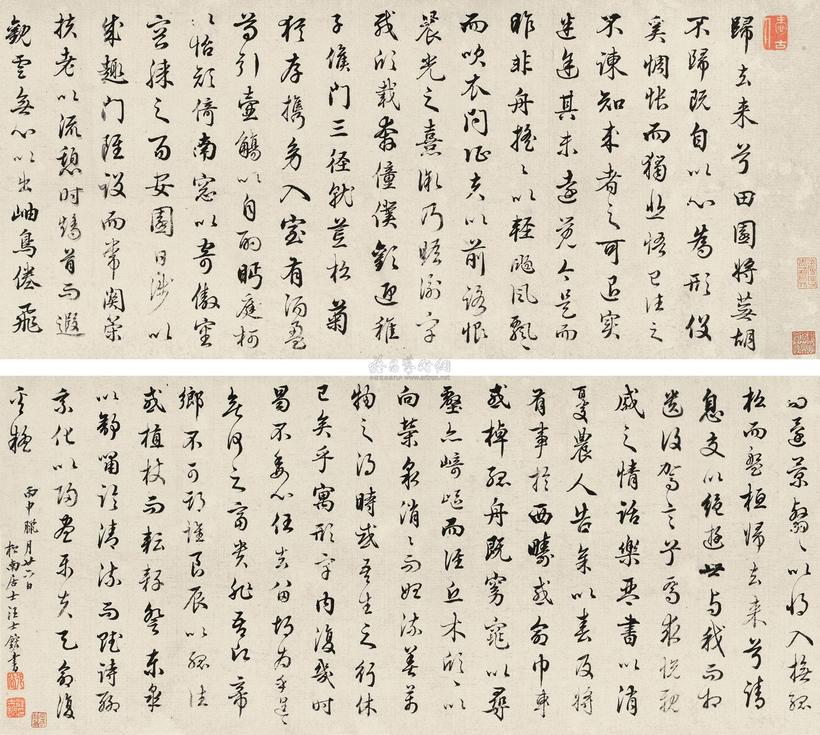 歸去来兮田園將蕪胡
不歸既自以心為形役
奚惆悵而獨悲悟已往之
不諫知来者之可追實
迷途其未遠覺今是而
昨非舟搖〻以輕颺風飄〻
而吹衣問征夫以前路恨
晨光之熹微乃瞻衡宇
載欣載奔僮僕歡迎稚
子候門三徑就荒松菊
猶存攜幼入室有酒盈
尊引壺觴以自酌眄庭柯
以怡顏倚南窓以寄傲審
容膝之易安園日涉以
成趣門雖設而常關策
扶老以流憩時矯首而遐
觀雲無心以出岫鳥倦飛
而還景翳〻以將入撫孤
松而盤桓歸去来兮請
息交以絕遊世與我而相
遺復駕言兮焉求悅親
戚之情話樂琴書以消
憂農人告余以春及將
有事於西疇或命巾車
或棹孤舟既窈窕以尋
壑亦崎嶇而經丘木欣〻以
向榮泉涓〻而始流善萬
物之得時感吾生之行休
已矣乎寓形宇內復幾時
曷不委心任去留胡為乎遑〻
欲何之富貴非吾願帝
鄉不可期懷良辰以孤往
或植杖而耘耔登東皋
以舒嘯臨清流而賦詩聊
乘化以歸盡樂夫天命復
奚疑
丙申臘月廿六日
松南居士汪士鋐書